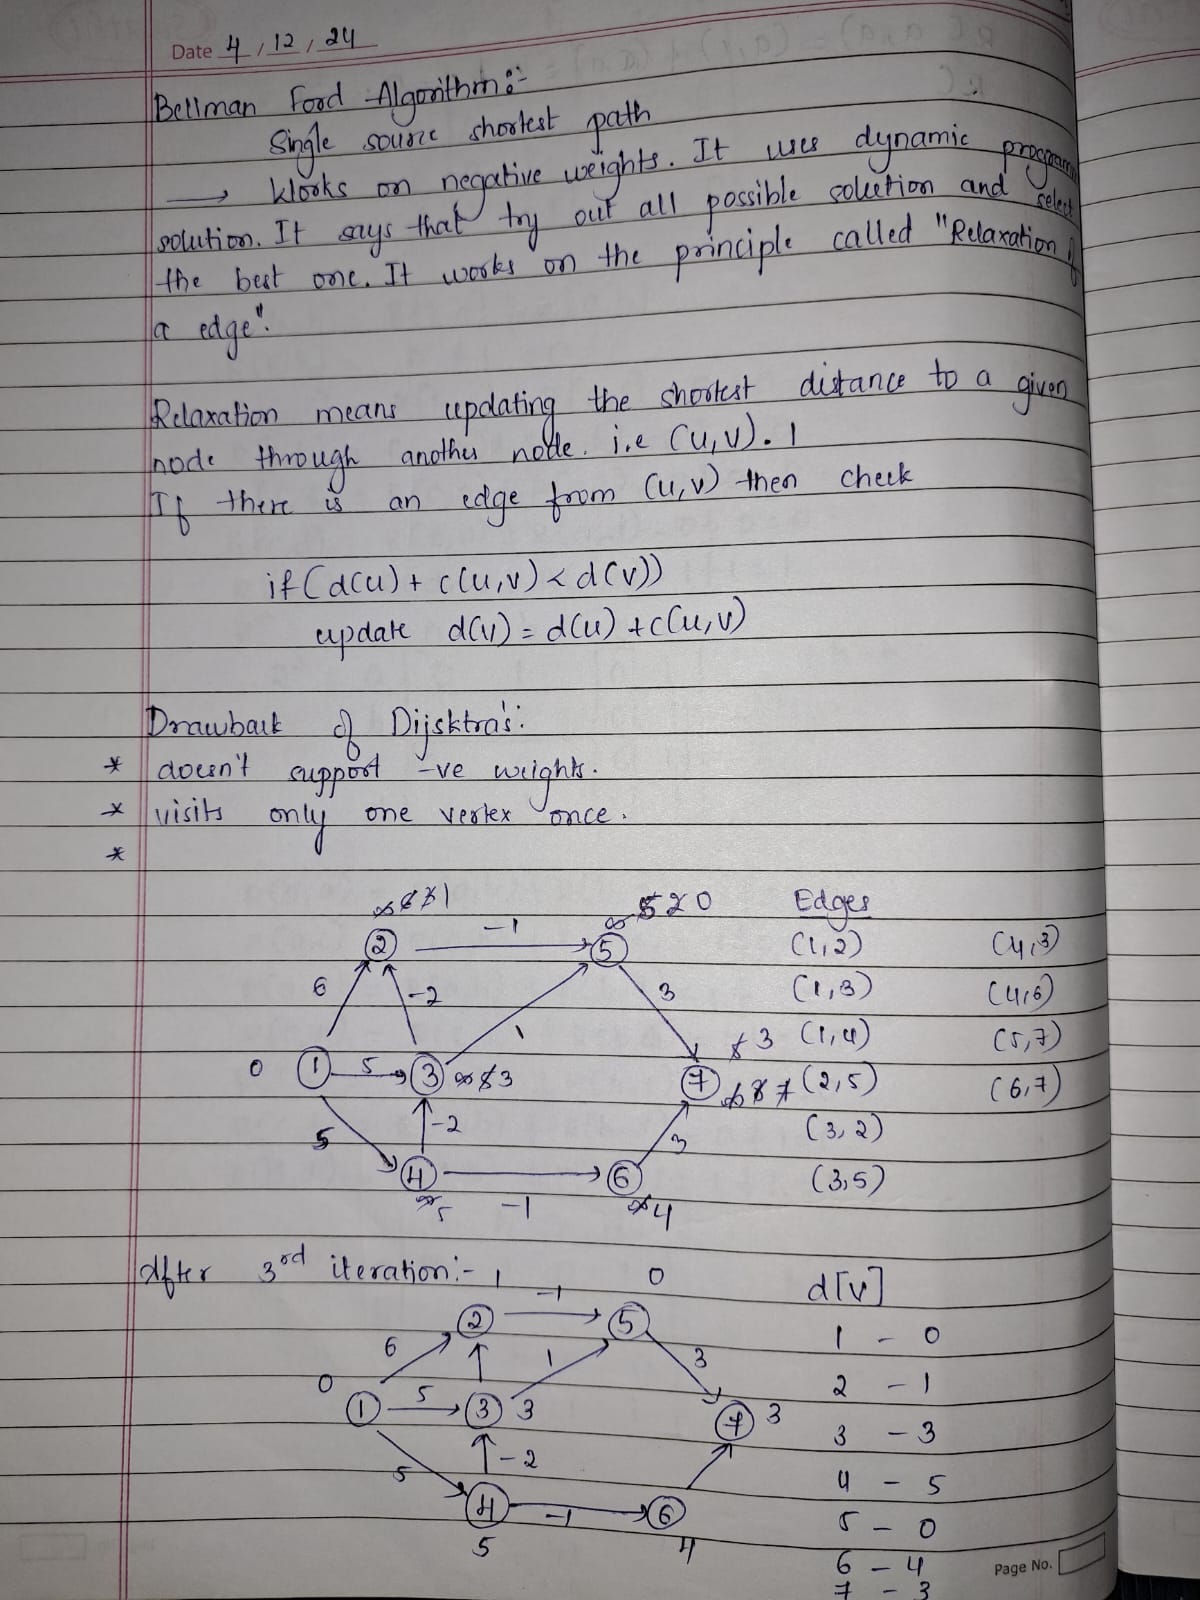 Date 4 / 12 / 24
Bellman Ford Algorithm:-
Single source shortest path
→ Works on negative weights. It uses dynamic programm
solution. It says that try out all possible solution and select
the best one. It works on the principle called "Relaxation of
a edge".
Relaxation means updating the shortest distance to a given
node through another node. i.e (u,v). 1
If there is an edge from (u,v) then check
if(d(u) + c(u,v) < d(v))
update d(v) = d(u) + c(u,v)
Drawback of Dijsktra's:
* doesn't support -ve weights.
* visits only one vertex once.
*
∞ 6 3 1
∞ 5 2 0
Edges
2 -1 5
(1,2) (4,3)
6 -2 3
(1,3) (4,6)
1
3 (1,4) (5,7)
0 1 5 3 ∞ 5 3
7 8 7 (2,5) (6,7)
5 -2 3
(3,2)
4 -1 6
(3,5)
∞ 5
∞ 4
After 3rd iteration:- 1 -1 0
d[v]
2 5
1 - 0
6 1 3
2 - 1
0 1 5 3 3 7 3
3 - 3
5 -2
4 - 5
4 -1 6
5 - 0
5 4
6 - 4
7 - 3
Page No.